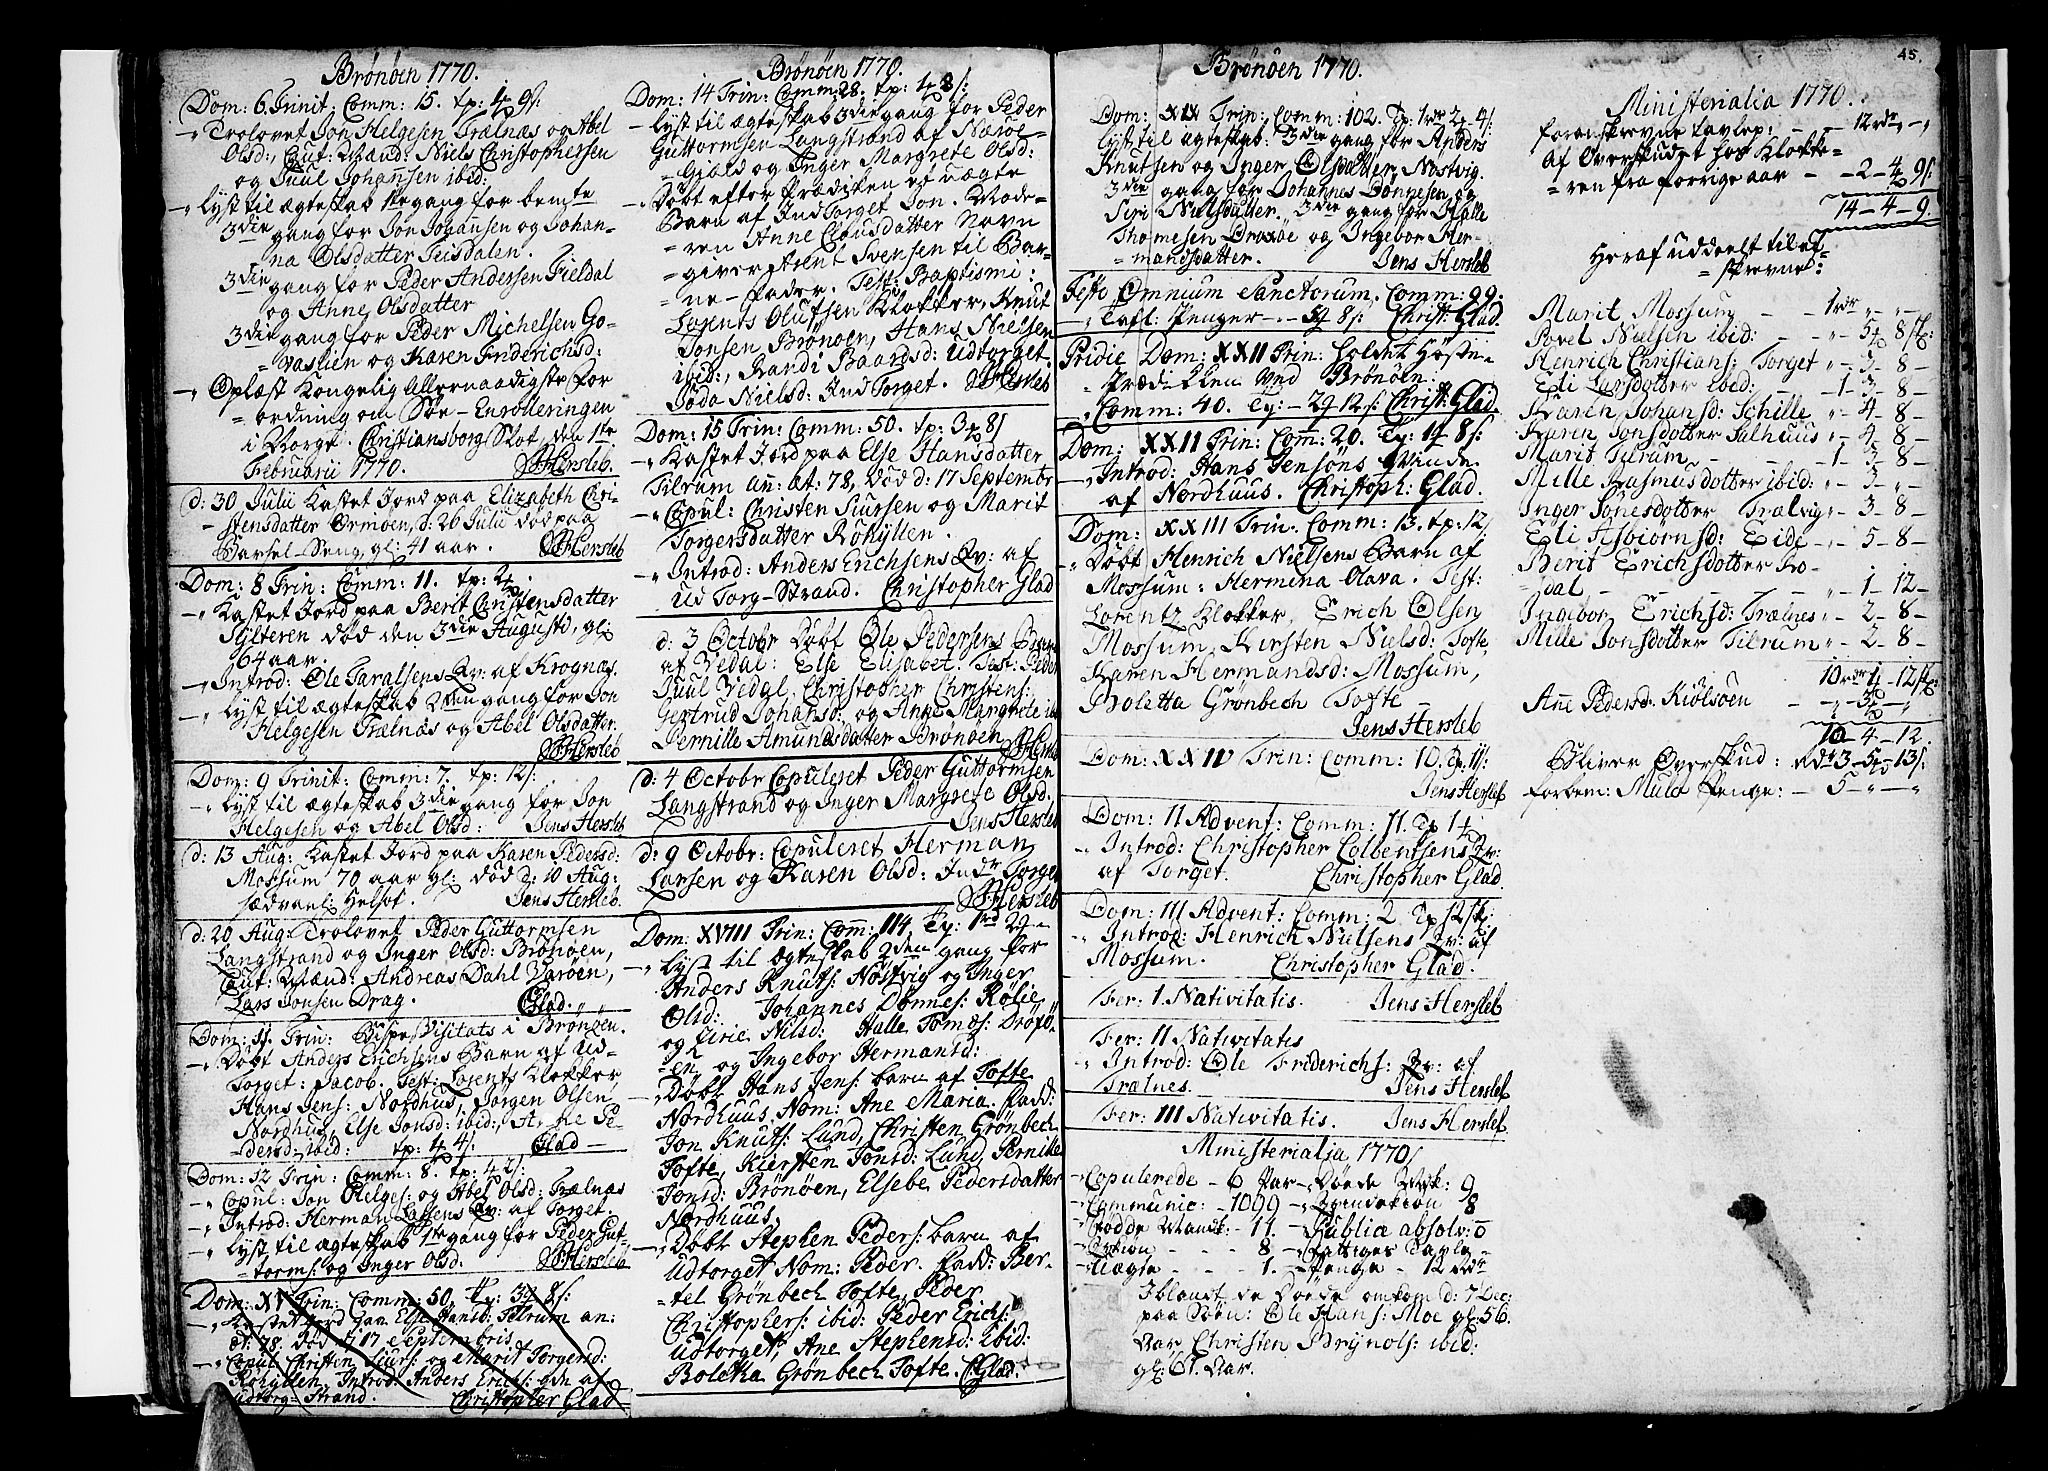 Brønöen 1770.
Dom: 6 Trinit: Comm: 15. tp: 4 9/:
Trolovet Jon Helgesen Trælnæs og Abel
Olsd:, Caut: Mænd: Niels Christophersen
og Juul Johansen ibid:
Lyst til ægteskab 1ste gang for bemte
3die gang for Jon Johansen og Johan-
na Olsdatter Teisdalen.
3die gang for Peder Andersen Fieldal
og Anne Olsdatter
3die gang for Peder Michelsen Go-
vaslien og Karen Friderichsd:
Oplæst Kongelig Allernaadigste For
= ordning om Søe-Enrolleringen
i Norge: Christiansborg Slot, den 1te
Februarii 1770. Hersleb.
d: 30 Julii Kastet Jord paa Elizabeth Chri-
stensdatter Ormøen, d: 26 Julii død paa
Barsel-Seng, gl: 41 aar. Hersleb
Dom: 8 Trin: Comm: 11. tp: 24
Kastet Jord paa Berit Christensdatter
død den 3die Augusti, gl:
64 aar.
Introd: Ole Taralsens Qv: af Krognæs.
Lyst til ægteskab 2den gang for Jon
Helgesen Trælnæs og Abel Olsdatter.
Hersleb
Dom: 9 Trinit: Comm: 7. tp: 12/:
Lyst til ægteskab 3die gang for Jon
Helgesen og Abel Olsd: Jens Hersleb
d: 13 Aug: Kastet Jord paa Karen Pedersd:
Mossum 70 aar gl: død d: 10 Aug:
sædvanl: Helsot. Jens Hersleb.
d: 20 Aug: Trolovet Peder Guttormsen
Langstrand og Inger Olsd: Brønöen,
Caut: Mænd: Andreas Dahl
Lars Jonsen Drag. Glad.
Dom: 11. Trin: Bispe Visitats i Brønöen.
Døbt Anders Erichsens Barn af Ud-
Torget: Jacob. Test: Lorents Klokker,
Hans Jens: Nordhus, Jørgen Olsen
Nordhus, Else Jonsd: ibid:, Anne Pe-
dersd: ibid: tp: 4 4/: Glad
Dom: 12 Trin: Comm: 8. tp: 4 2/:
Copul: Jon Helges: og Abel Olsd: Trælnæs
Introd: Herman Larsens Qv: af Torget.
Lyst til ægteskab 1ste gang for Peder Gut-
torms: og Inger Olsd. Hersleb
Dom: XV Trin: Comm: 50. Tp: 3 8/:
Kastet Jord paa Else Hansd: Tilrum an:
æt: 78. død d: 17 Septembris
Copul: Christen Siurs: og Marit Torgersd:
Røhyllen. Introd: Anders Erichs: qde af
Udtorg-Strand. Christopher Glad
Brønöen 1770.
Dom: 14 Trin: Comm: 28. tp: 1 8/:
Lyst til ægteskab 3die gang for Peder
Guttormsen Langstrand af Nærøe-
Gield og Inger Margrete Olsd:
Døbt efter Prædiken et uægte
Barn af IndTorget Jon. Mode-
ren Anne Clausdatter Navn
= giver Arent Svensen til Bar-
= ne-fader. Test: Baptismi:
Lorents Olufsen Klokker, Knut
Jonsen, Brønöen, Hans Nielsen
ibid:, Randi Baardsd: Udtorget
Joda Nielsd: IndTorget. Hersleb
Dom: 15 Trin: Comm: 50. tp: 3 8/
Kastet Jord paa Else Hansdatter
Tilrum an: æt: 78, død d: 17 Septembr
Copul: Christen Siursen og Marit
Torgersdatter Røhyllen.
Introd: Anders Erichsens Qv: af
Ud Torg-Strand. Christopher Glad
d: 3 Octobr Døbt Ole Pedersens Barn
af Vedal: Else Elisabet. Test: Peder
Juul Vedal, Christopher Christens:
Gertrud Johansd: og Anne Margrete ib
Pernille Amundsdatter Brønöen
d: 4 Octobr Copuleret Peder Guttormsen
Langstrand og Inger Margrete Olsd.
Jens Hersleb
d: 9 Octobr: Copuleret Herman
Larsen og Karen Olsd: Indr Torget
Hersleb
Dom: XVIII Trin: Com: 114 Tp: 1rd 2
Lyst til ægteskab 2den gang for
Anders Knuts: Nøstvig og Inger
Olsd: Johannes Dønnes: Rølie
og Sirie Nilsd: Halle Tomæs: Drøfö-
en, og Ingebor Hermansd:
Døbt Hans Jens: barn af Tofte
Nordhuus, Nom: Ane Maria. Fadd:
Jon Knuts: Lund, Christen Grönbech
Tofte, Kiersten Jonsd: Lund, Pernille
Jonsd: Brønöen, Elsebe Pedersdatter
Nordhuus
Døbt Stephen Peders: barn af
Udtorget Nom: Peder. Fadd: Ber-
tel Grönbech Tofte, Peder
Christophers: ibid: Peder Erichs:
Udtorget, Ane Stephensd: ibid:
Boletta Grönbech Tofte. C: Glad.
Brønöen 1770.
Dom: XIX Trin: Comm: 102. Tp: 1rdr 2 4/:
Lyst til ægteskab: 3die gang for Anders
Knutsen og Inger Olsdatter, Nøstvig.
3die gang for Johannes Dønnesen og
Siri Nielsdatter. 3die gang for Halle
Thomesen Drøföe og Ingebor Her-
mandsdatter. Jens Hersleb
Festo Omnium Sanctorum. Comm: 99.
Tafl: Penger - 5 8/: Christ: Glad.
Pridie Dom: XXII Trin: holdt Høstn-
Prædikken ved Brønöen.
Comm: 40. Tp: - 2 12/: Christ: Glad.
Dom: XXII Trin: Com: 20. Tp: 1 8/:
Introd: Hans Jensöns Qvinde
af Nordhuus. Christoph: Glad.
Dom: XXIII Trin. Comm: 13. tp: 12/
Døbt Henrich Nielsens Barn af
Mossum: Hermina Olava. Test:
Lorentz Klokker, Erich Olsen
Mossum, Kirsten Nielsd: Tofte,
Karen Hermandsd: Mossum,
Boletta Grønbech Tofte
Jens Hersleb
Dom: XXIV Trin: Comm: 10. Tp: 11/:
Jens Hersleb
Dom: II Advent: Comm: 11. Tp 1
Introd: Christopher Colbentsens Qv:
af Torget. Christopher Glad.
Dom: III Advent: Comm: 2. Tp 12/:
Introd: Henrich Nielsens Qv: af
Mossum. Christopher Glad.
Fer: 1. Nativitatis. Jens Hersleb
Fer: II Nativitatis
Introd: Ole Friderichs: Qv: af
Trælnes. Jens Hersleb
Fer: III Nativitatis. Jens Hersleb
Ministerialia 1770/
Copulerede - 6 Par Døde Mk: 9
Communic: - 1099 Qvindekiön 8
Fødde Mandk: - 11. Publicè absolv: 0
Qvkiön - - - 8 Fattiges Tavle-
Uægte - - - 1. Penge - 12 rdr
Iblandt de Døde omkom d: 7 Dec:
paa Søen: Ole Hans: Moe gl: 56.
Aar Christen Brynols: ibid:
gl: 61. Aar.
45.
Ministerialia 1770.
foranskrevne tavlep: - - 12 rdr
Af Overskudet hos Klokke-
= ren fra forrige aar - - 2 - 4 9/:
14 - 4 - 9.
Heraf uddeelt til ef-
= skrevne:
Marit Mossum - - 1rdr
Povel Nielsen ibid: - - 5 8/:
Henrich Christians: Torget - 3 - 8 -
Eli Larsdotter ibid: - 1 - 3 - 8 -
Karen Johansd: Schille - 4 - 8 -
Karen Jonsdotter Salhuus - 4 - 8 -
Marit Tilrum - - 1 - 3 - 8 -
Mille Rasmusdotter ibid: - 5 -
Inger Jonesdotter Trælvig - 3 - 8
Eli Tisbiørnsd: Eide - 5 - 8 -
Berit Erichsdotter Fro-
dal - - - 1 - 12 -
Ingebor Erichsd: Trælnes - 2 - 8 -
Mille Jonsdotter Tilrum - 2 - 8 -
10 rdr 1 - 12/:
Ane Pedersd: Kiölsöen - - 3
10 - 4 - 12.
Bliver Overskud: Rdr 3 - 5 - 13/:
forbem: Mulct Penge: - 5